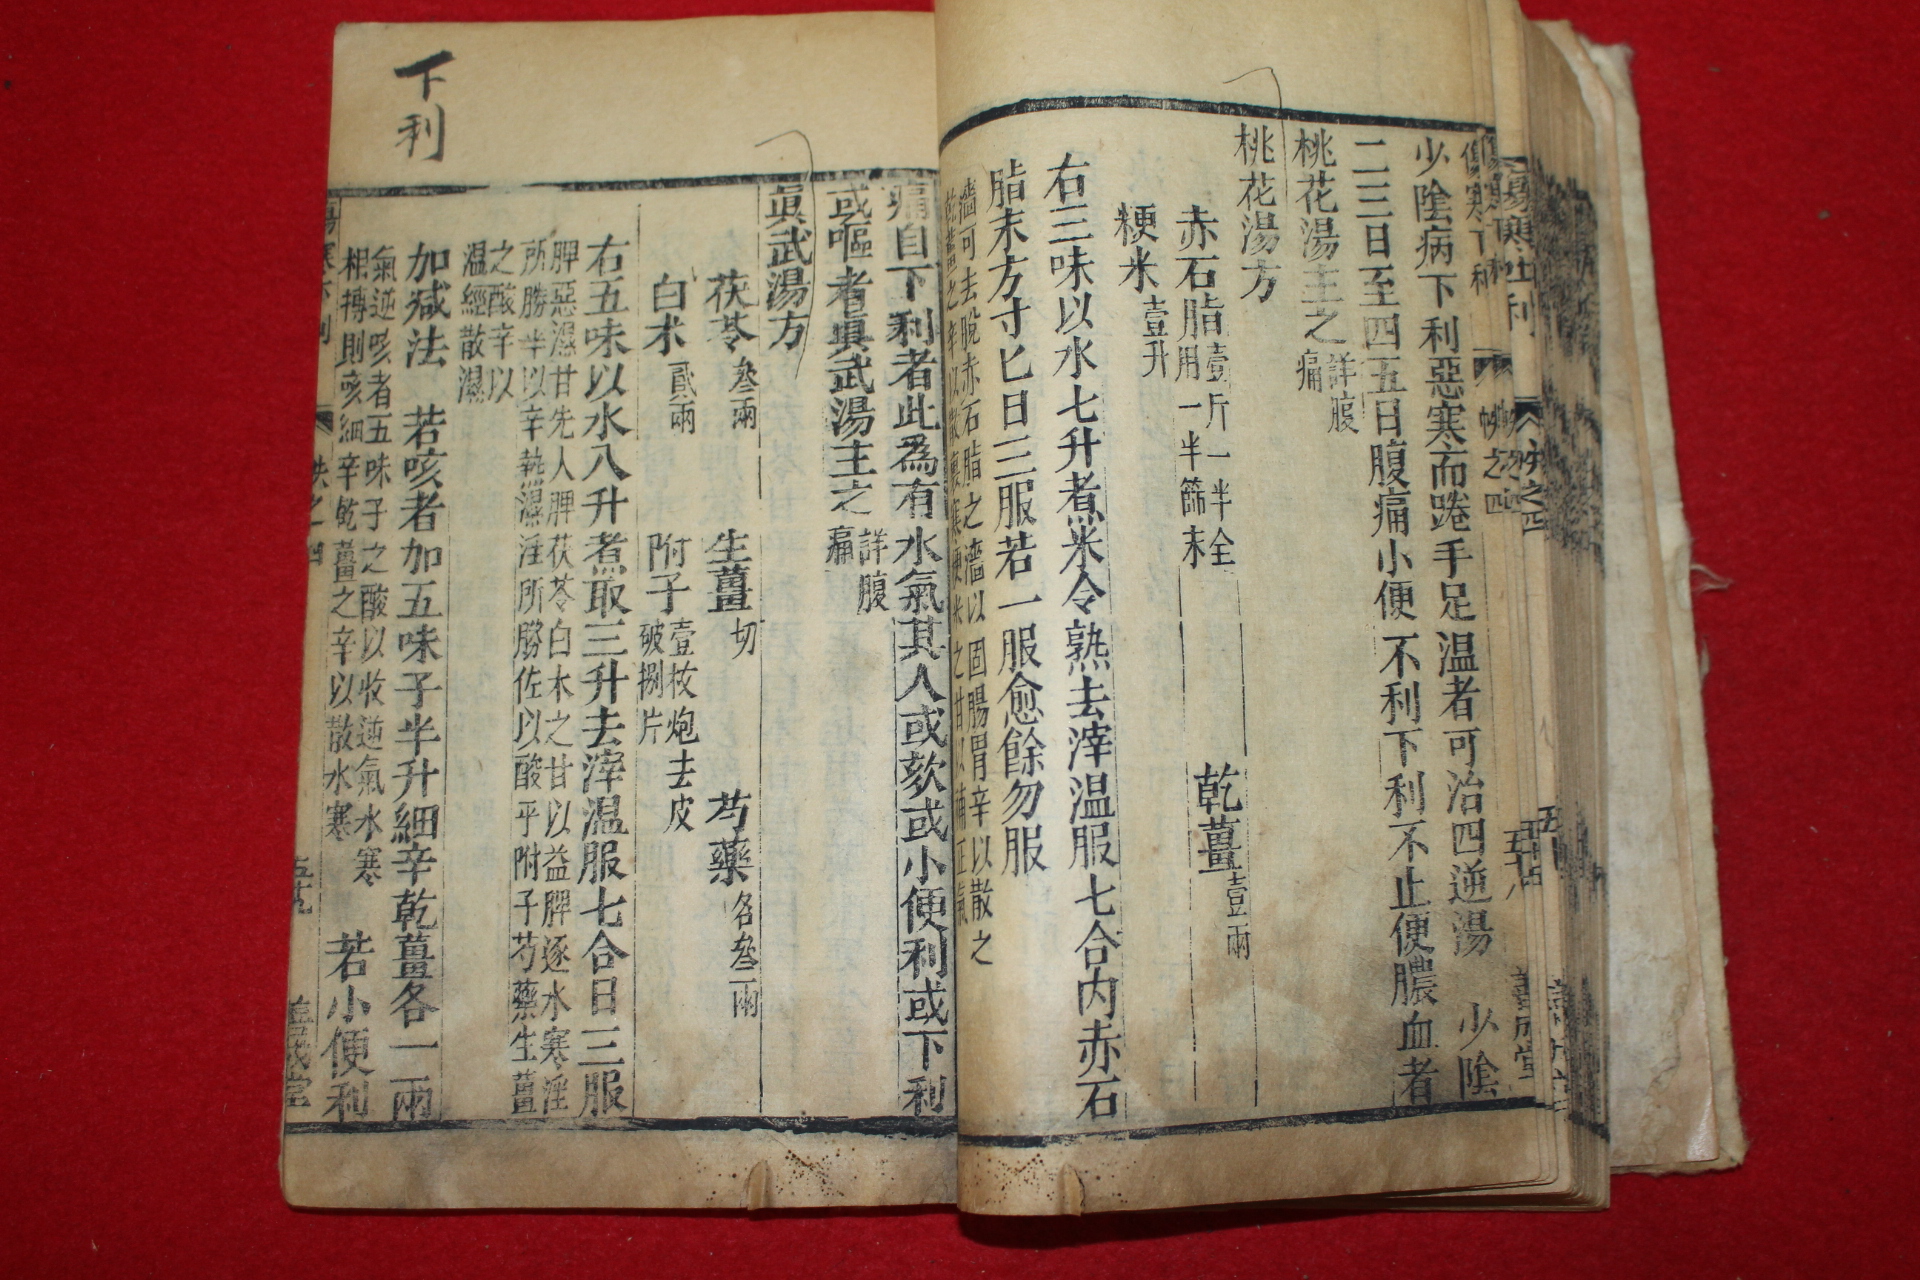 少陰病下利惡寒而踡手足溫者可治四逆湯　少陰
二三日至四五日腹痛小便不利下利不止便膿血者
桃花湯主之詳腹痛
桃花湯方
赤石脂壹斤一半全用一半篩末　乾薑壹兩
粳米壹升
右三味以水七升煮米令熟去滓温服七合内赤石
脂末方寸匕日三服若一服愈餘勿服
濇可去脫赤石脂之濇以固腸胃辛以散之
痛自下利者此為有水氣其人或欬或小便利或下利
或嘔者眞武湯主之詳腹痛
眞武湯方
茯苓叄兩　生薑切　芍藥各叄兩
白术貳兩　附子壹枚炮去皮破捌片
右五味以水八升煮取三升去滓温服七合日三服
脾惡濕甘先入脾茯苓白术之甘以益脾逐水寒淫
所勝平以辛熱濕淫所勝佐以酸平附子芍藥生薑
之酸辛以
温經散濕
加減法　若咳者加五味子半升細辛乾薑各一兩
氣逆咳者五味子之酸以收逆氣水寒
相搏則咳細辛乾薑之辛以散水寒
若小便利
下利